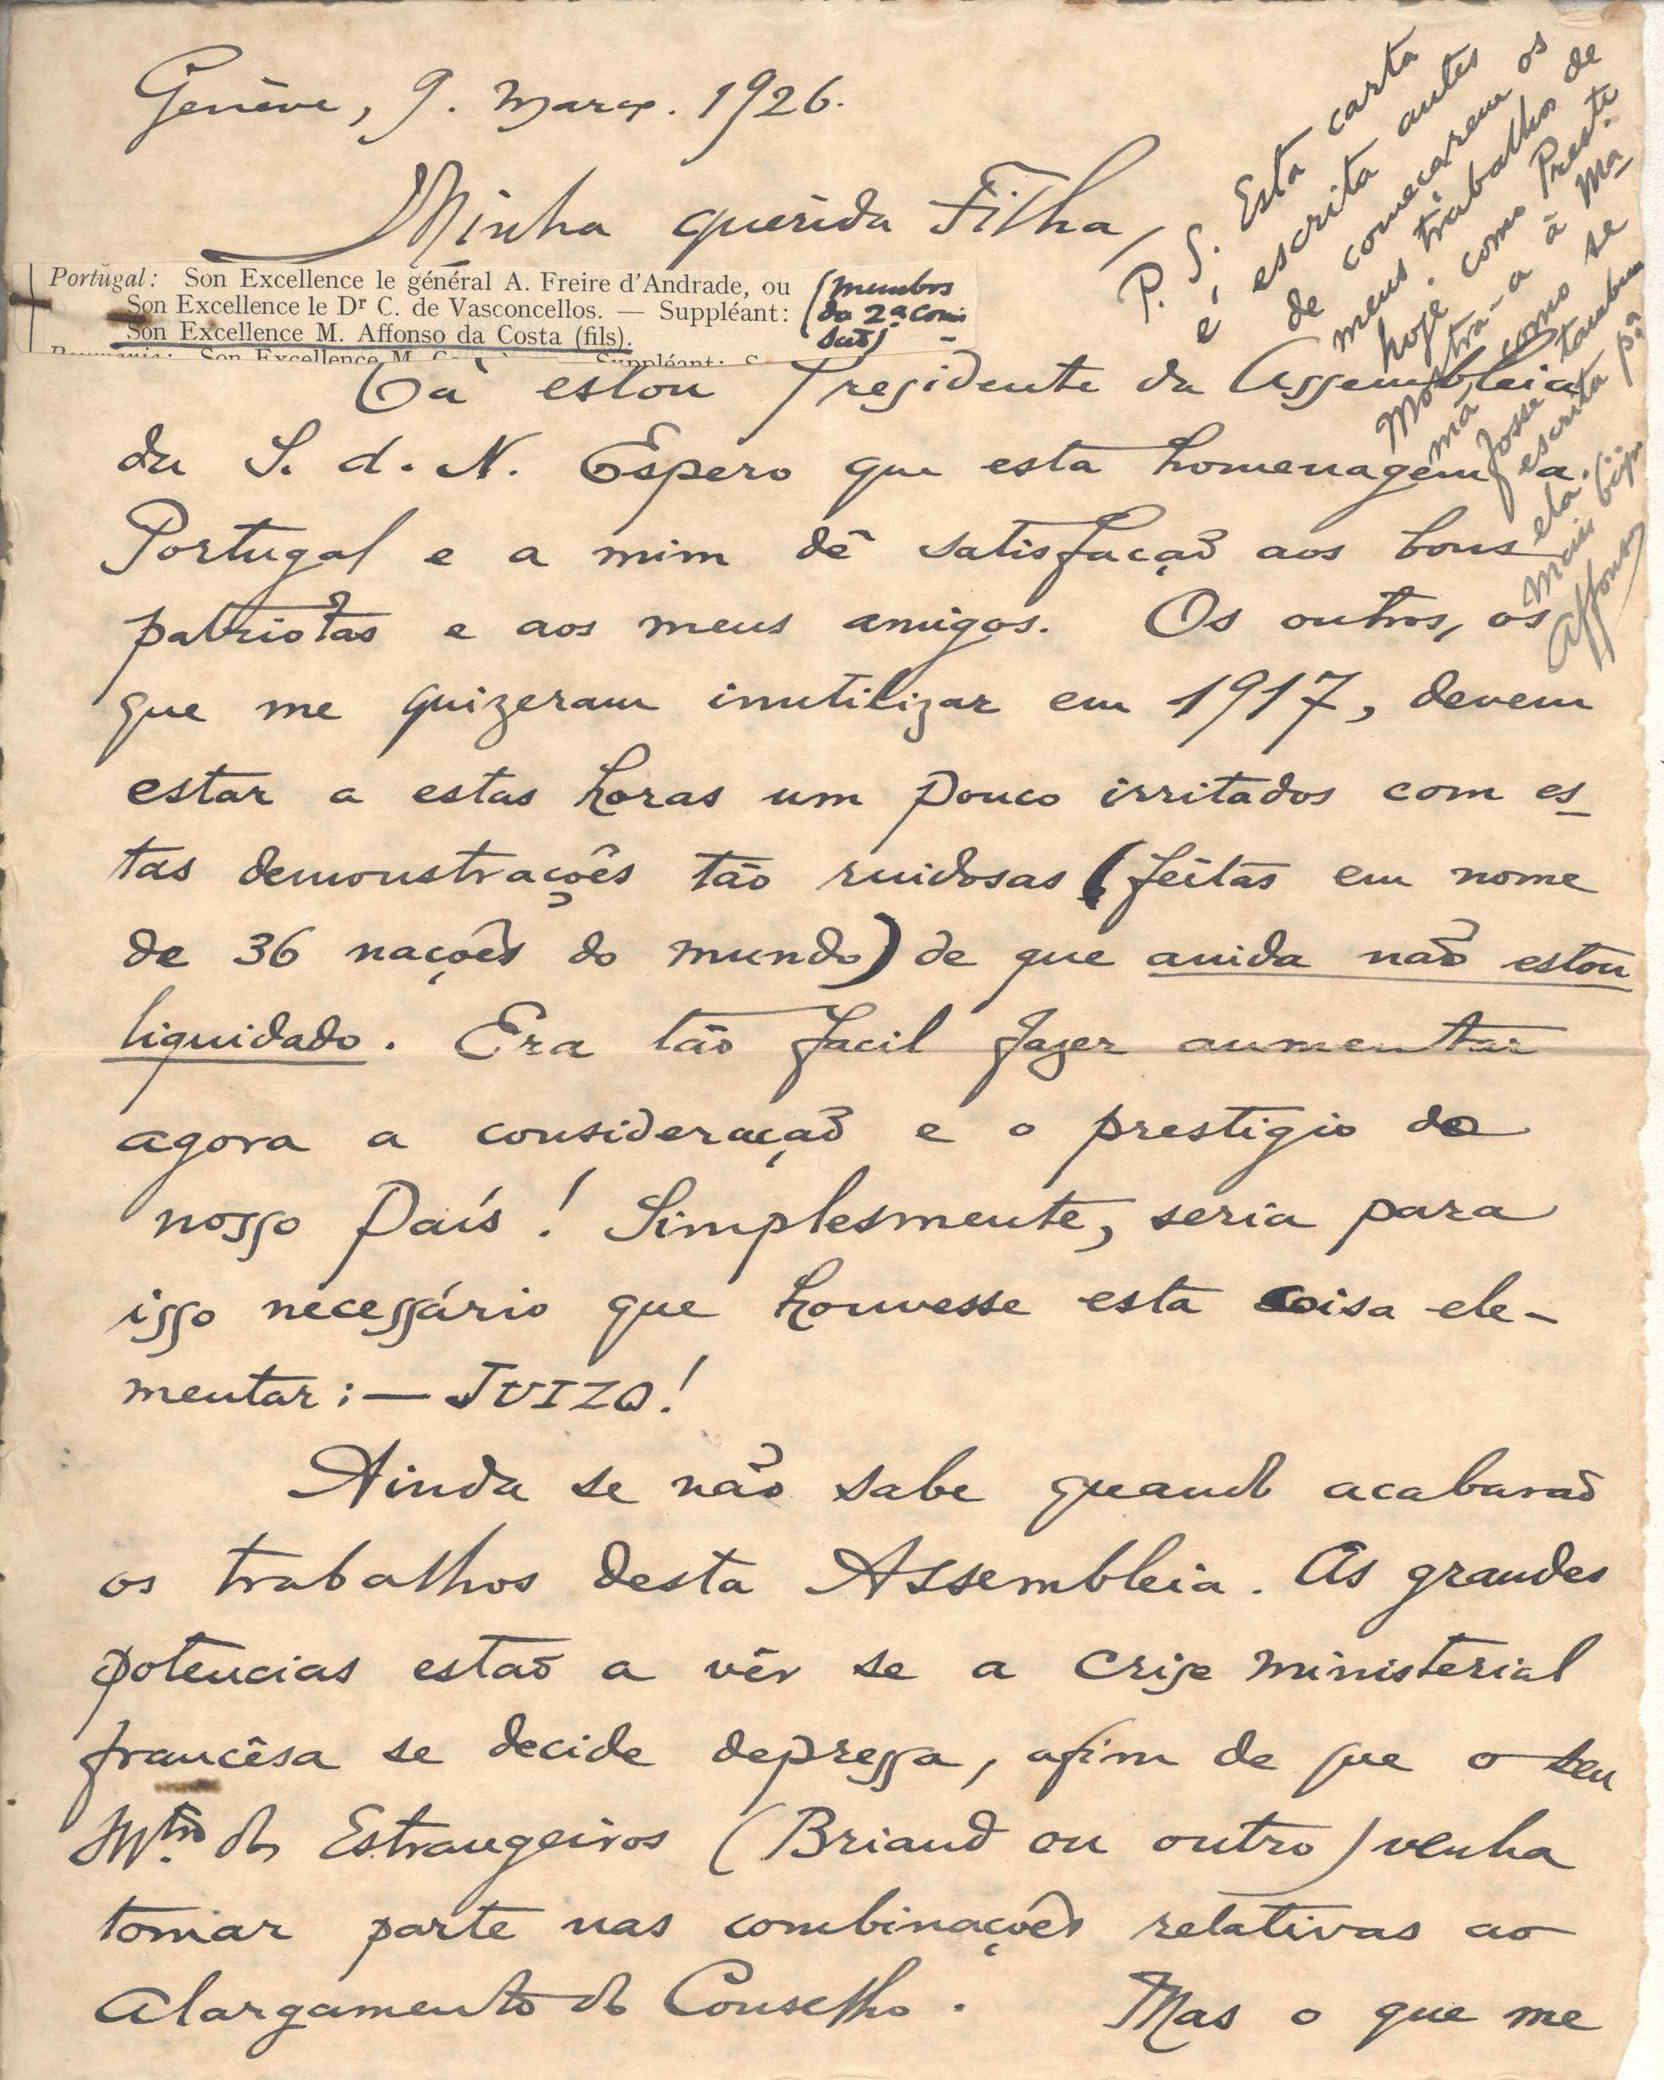 Genève, 9. Março. 1926.
Minha querida Filha,
Portugal: Son Excellence le général A. Freire d'Andrade, ou
Son Excellence le Dr C. de Vasconcellos. — Suppléant:
Son Excellence M. Affonso da Costa (fils).
(membros
da 2ª Comis
são)
Cá estou Presidente da Assembleia
da S. d. N. Espero que esta homenagem a
Portugal e a mim dê satisfação aos bons
patriotas e aos meus amigos. Os outros, os
que me quizeram inutilizar em 1917, devem
estar a estas horas um pouco irritados com es-
tas demonstrações tão ruidosas (feitas em nome
de 36 nações do mundo) de que ainda não estou
liquidado. Era tão facil fazer aumentar
agora a consideração e o prestigio do
nosso País! Simplesmente, seria para
isso necessário que houvesse esta coisa ele-
mentar: — JUIZO!
Ainda se não sabe quando acabarão
os trabalhos desta Assembleia. As grandes
potencias estão a vêr se a crise ministerial
francêsa se decide depressa, afim de que o seu
Mtro. dos Estrangeiros (Briand ou outro) venha
tomar parte nas combinações relativas ao
alargamento do Conselho. Mas o que me
P. S. Esta carta
é escrita antes
de começarem os
meus trabalhos de
hoje como Preste.
Mostra-a á Ma
mã como se
fosse tambem
escrita pa
ela.
Mais bijn
Affonso